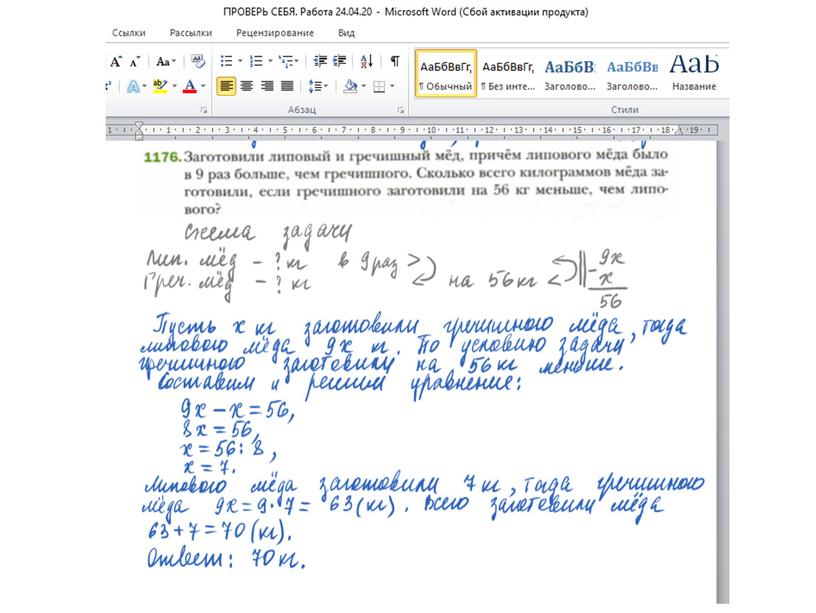 ПРОВЕРЬ СЕБЯ. Работа 24.04.20 - Microsoft Word (Сбой активации продукта)
Ссылки Рассылки Рецензирование Вид
АаБбВвГг, АаБбВвГг, АаБбВ АаБбВв АаБ
¶ Обычный ¶ Без инте... Заголово... Заголово... Название
Абзац Стили
1 1 2 3 4 5 6 7 8 9 10 11 12 13 14 15 16 17 18 19
1176. Заготовили липовый и гречишный мёд, причём липового мёда было
в 9 раз больше, чем гречишного. Сколько всего килограммов мёда за-
готовили, если гречишного заготовили на 56 кг меньше, чем липо-
вого?
Схема задачи
Лип. мёд – ? кг в 9 раз >
Греч. мёд – ? кг на 56 кг <
– 9x
x
56
Пусть x кг заготовили гречишного мёда, тогда
липового мёда 9x кг. По условию задачи
гречишного заготовили на 56 кг меньше.
Составим и решим уравнение:
9x – x = 56,
8x = 56,
x = 56 : 8,
x = 7.
Липового мёда заготовили 7 кг, тогда гречишного
мёда 9x = 9·7 = 63 (кг). Всего заготовили мёда
63 + 7 = 70 (кг).
Ответ: 70 кг.